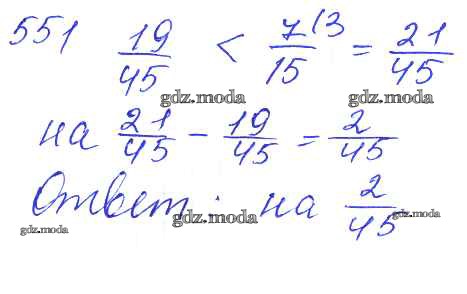 551 19/45 < 7(3/15 = 21/45
gdz.moda gdz.moda
на 21/45 - 19/45 = 2/45
Ответ: на 2/45
gdz.moda gdz.moda gdz.moda